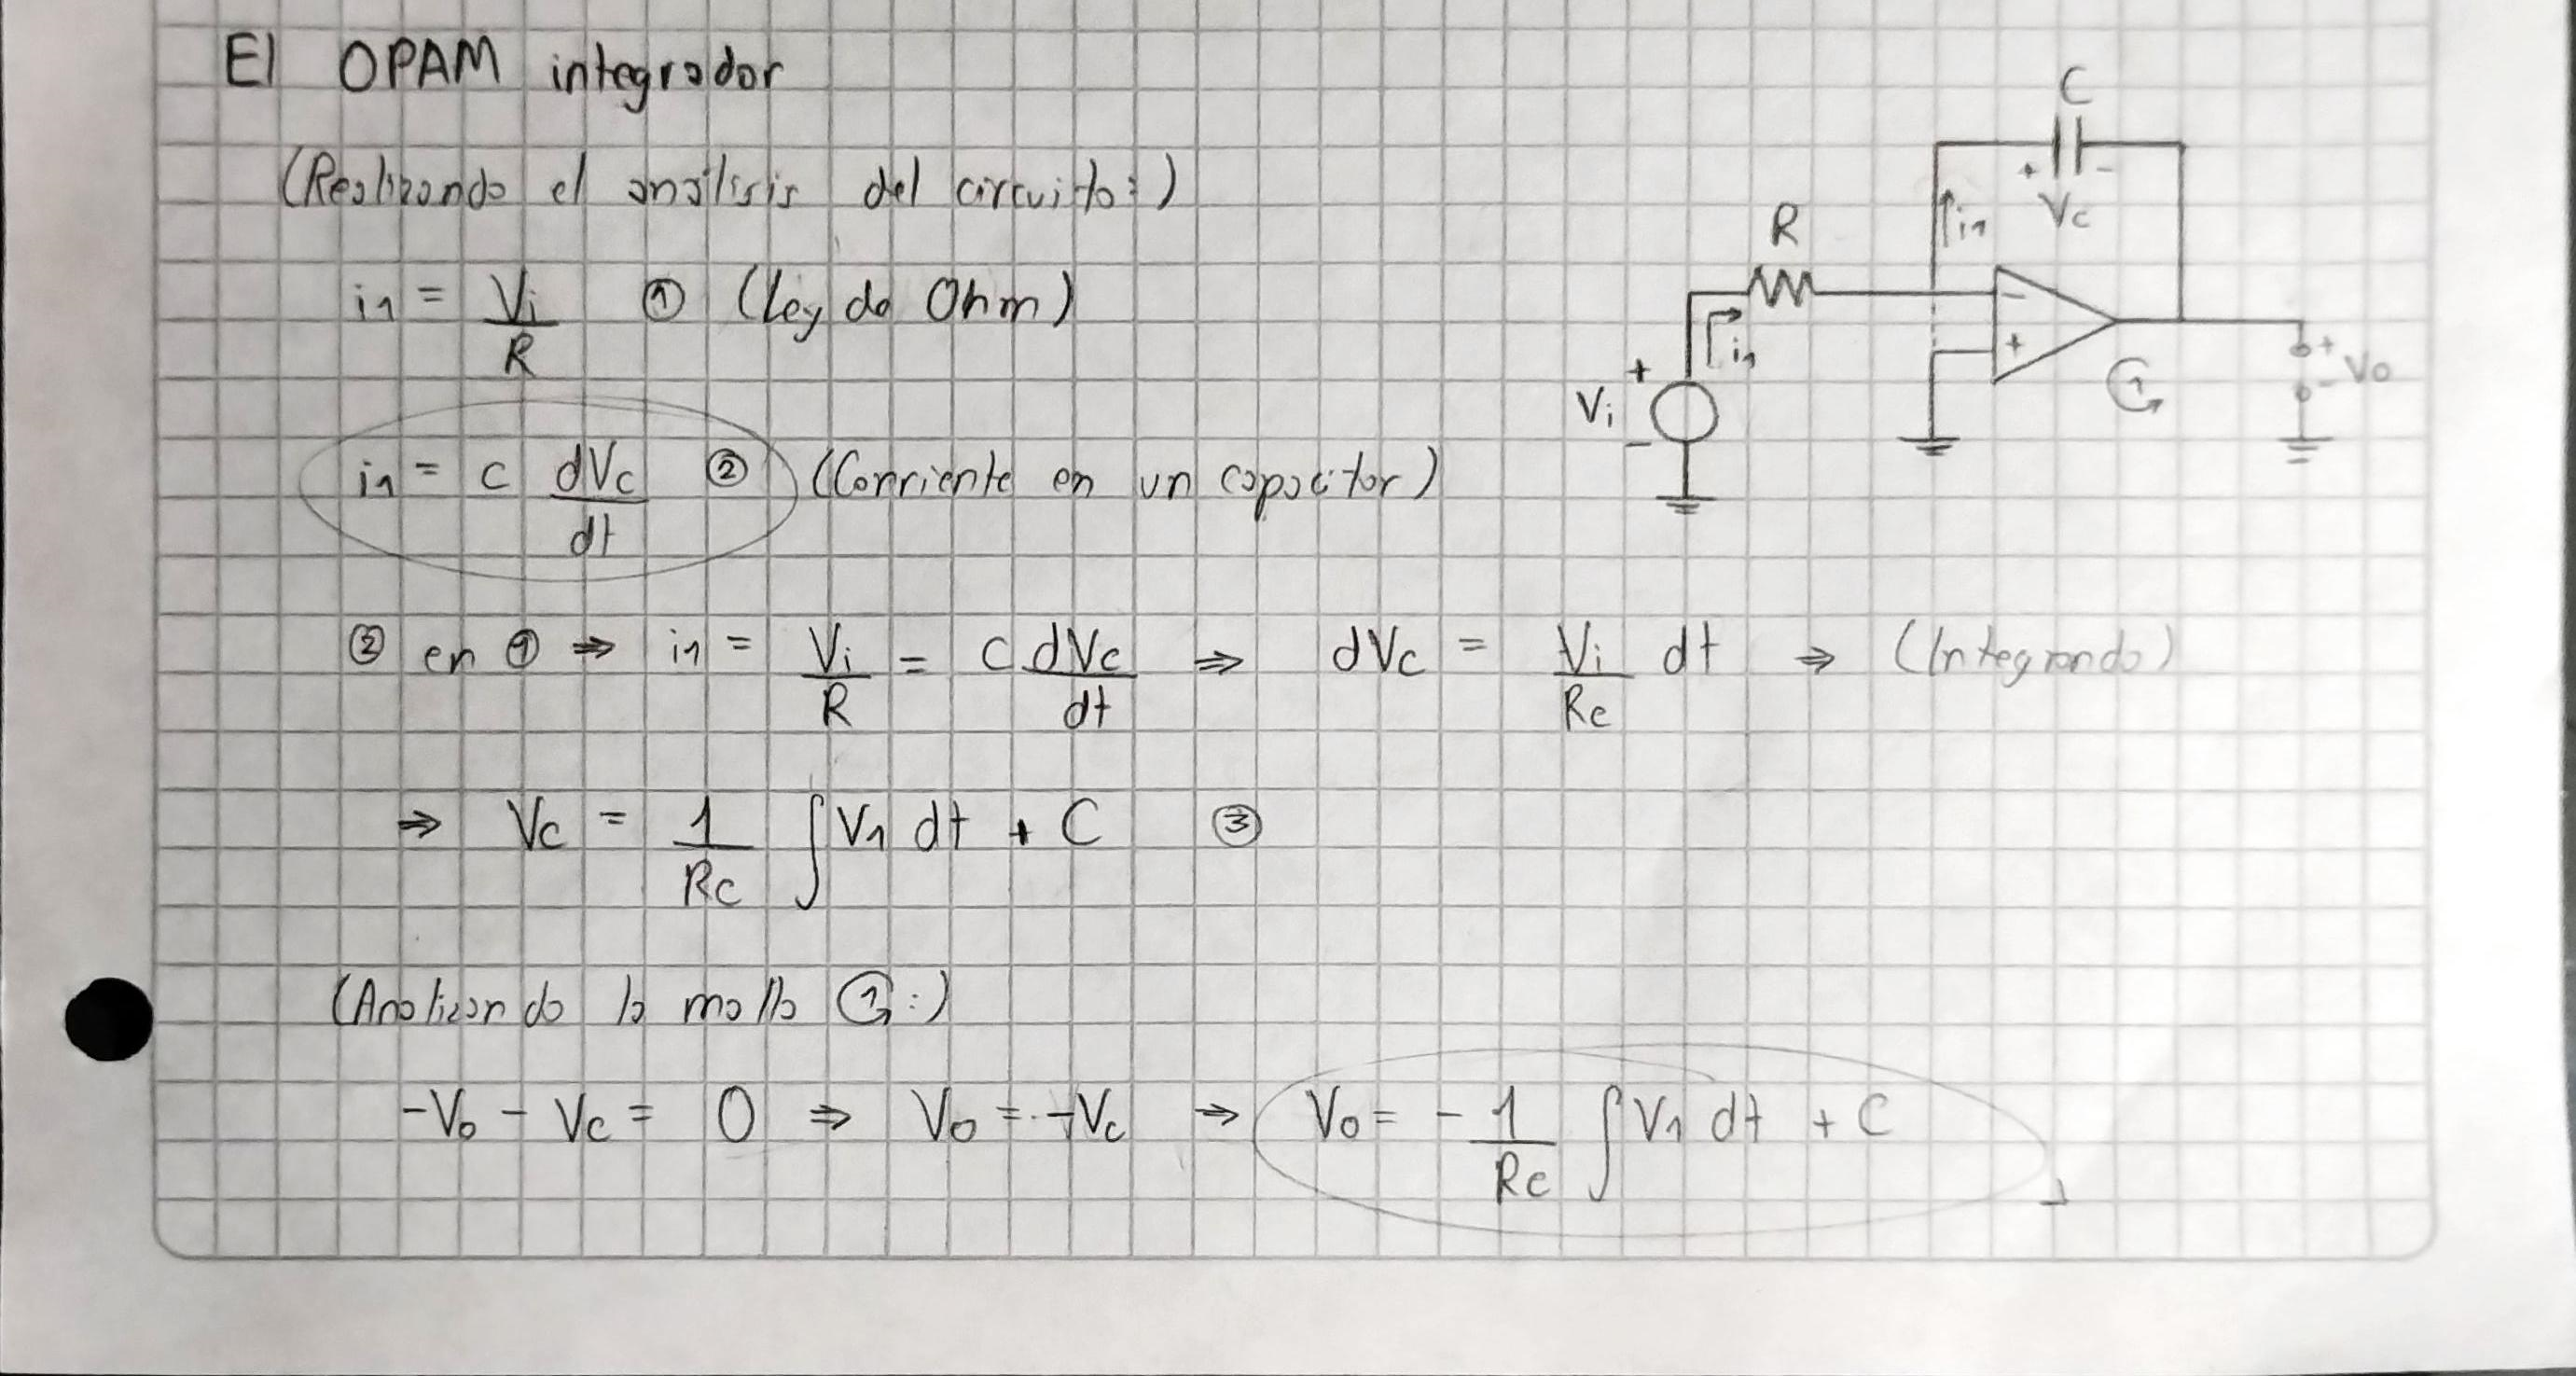 El OPAM integrador
(Realizando el análisis del circuito:)
i₁ = Vi/R ① (Ley de Ohm)
i₁ = C dVc/dt ② (Corriente en un capacitor)
② en ① ⇒ i₁ = Vi/R = C dVc/dt ⇒ dVc = Vi/Rc dt ⇒ (Integrando)
⇒ Vc = 1/Rc ∫V₁ dt + C ③
(Analizando la malla 1:)
-Vo - Vc = 0 ⇒ Vo = -Vc ⇒ Vo = - 1/Rc ∫V₁ dt + C
C
+ Vc -
i₁
R
i₁
-
+
+
Vi
-
1
+
Vo
-